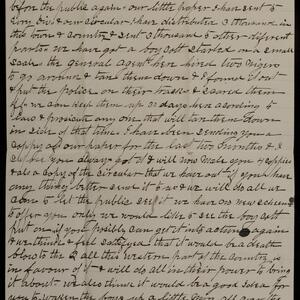 before the public again. our little paper I have sent to
Every Div & our Circular I have distributed 2 thousand in
this town & country & sent 3 thousand to other different
parties we have got a boycott started on a small
scale the general agent here hired two
to go around & tare them down & I found it out
& put the police on their tracks & scared them
off we can keep them up 20 days here according to
Law & prosecute any one that will tare them down
in side of that time. I have been sending you a
copy of our paper for the last two months & I
suppose you always got it & will now mail you 4 copies
& also a copy of the circular that we have out if you have
any thing better send it to us & we will do all we
can to let the public see it we have no new scheme
to offer you only we would like to see the boycott
put on if you possibly can get it into action again
& we think & feel satisfied that it would be a death
blow to the Q all this western part of the country is
in favour of it & will do all in their power to bring
it about we think it would be a good idea for
you to waken the boys up a little